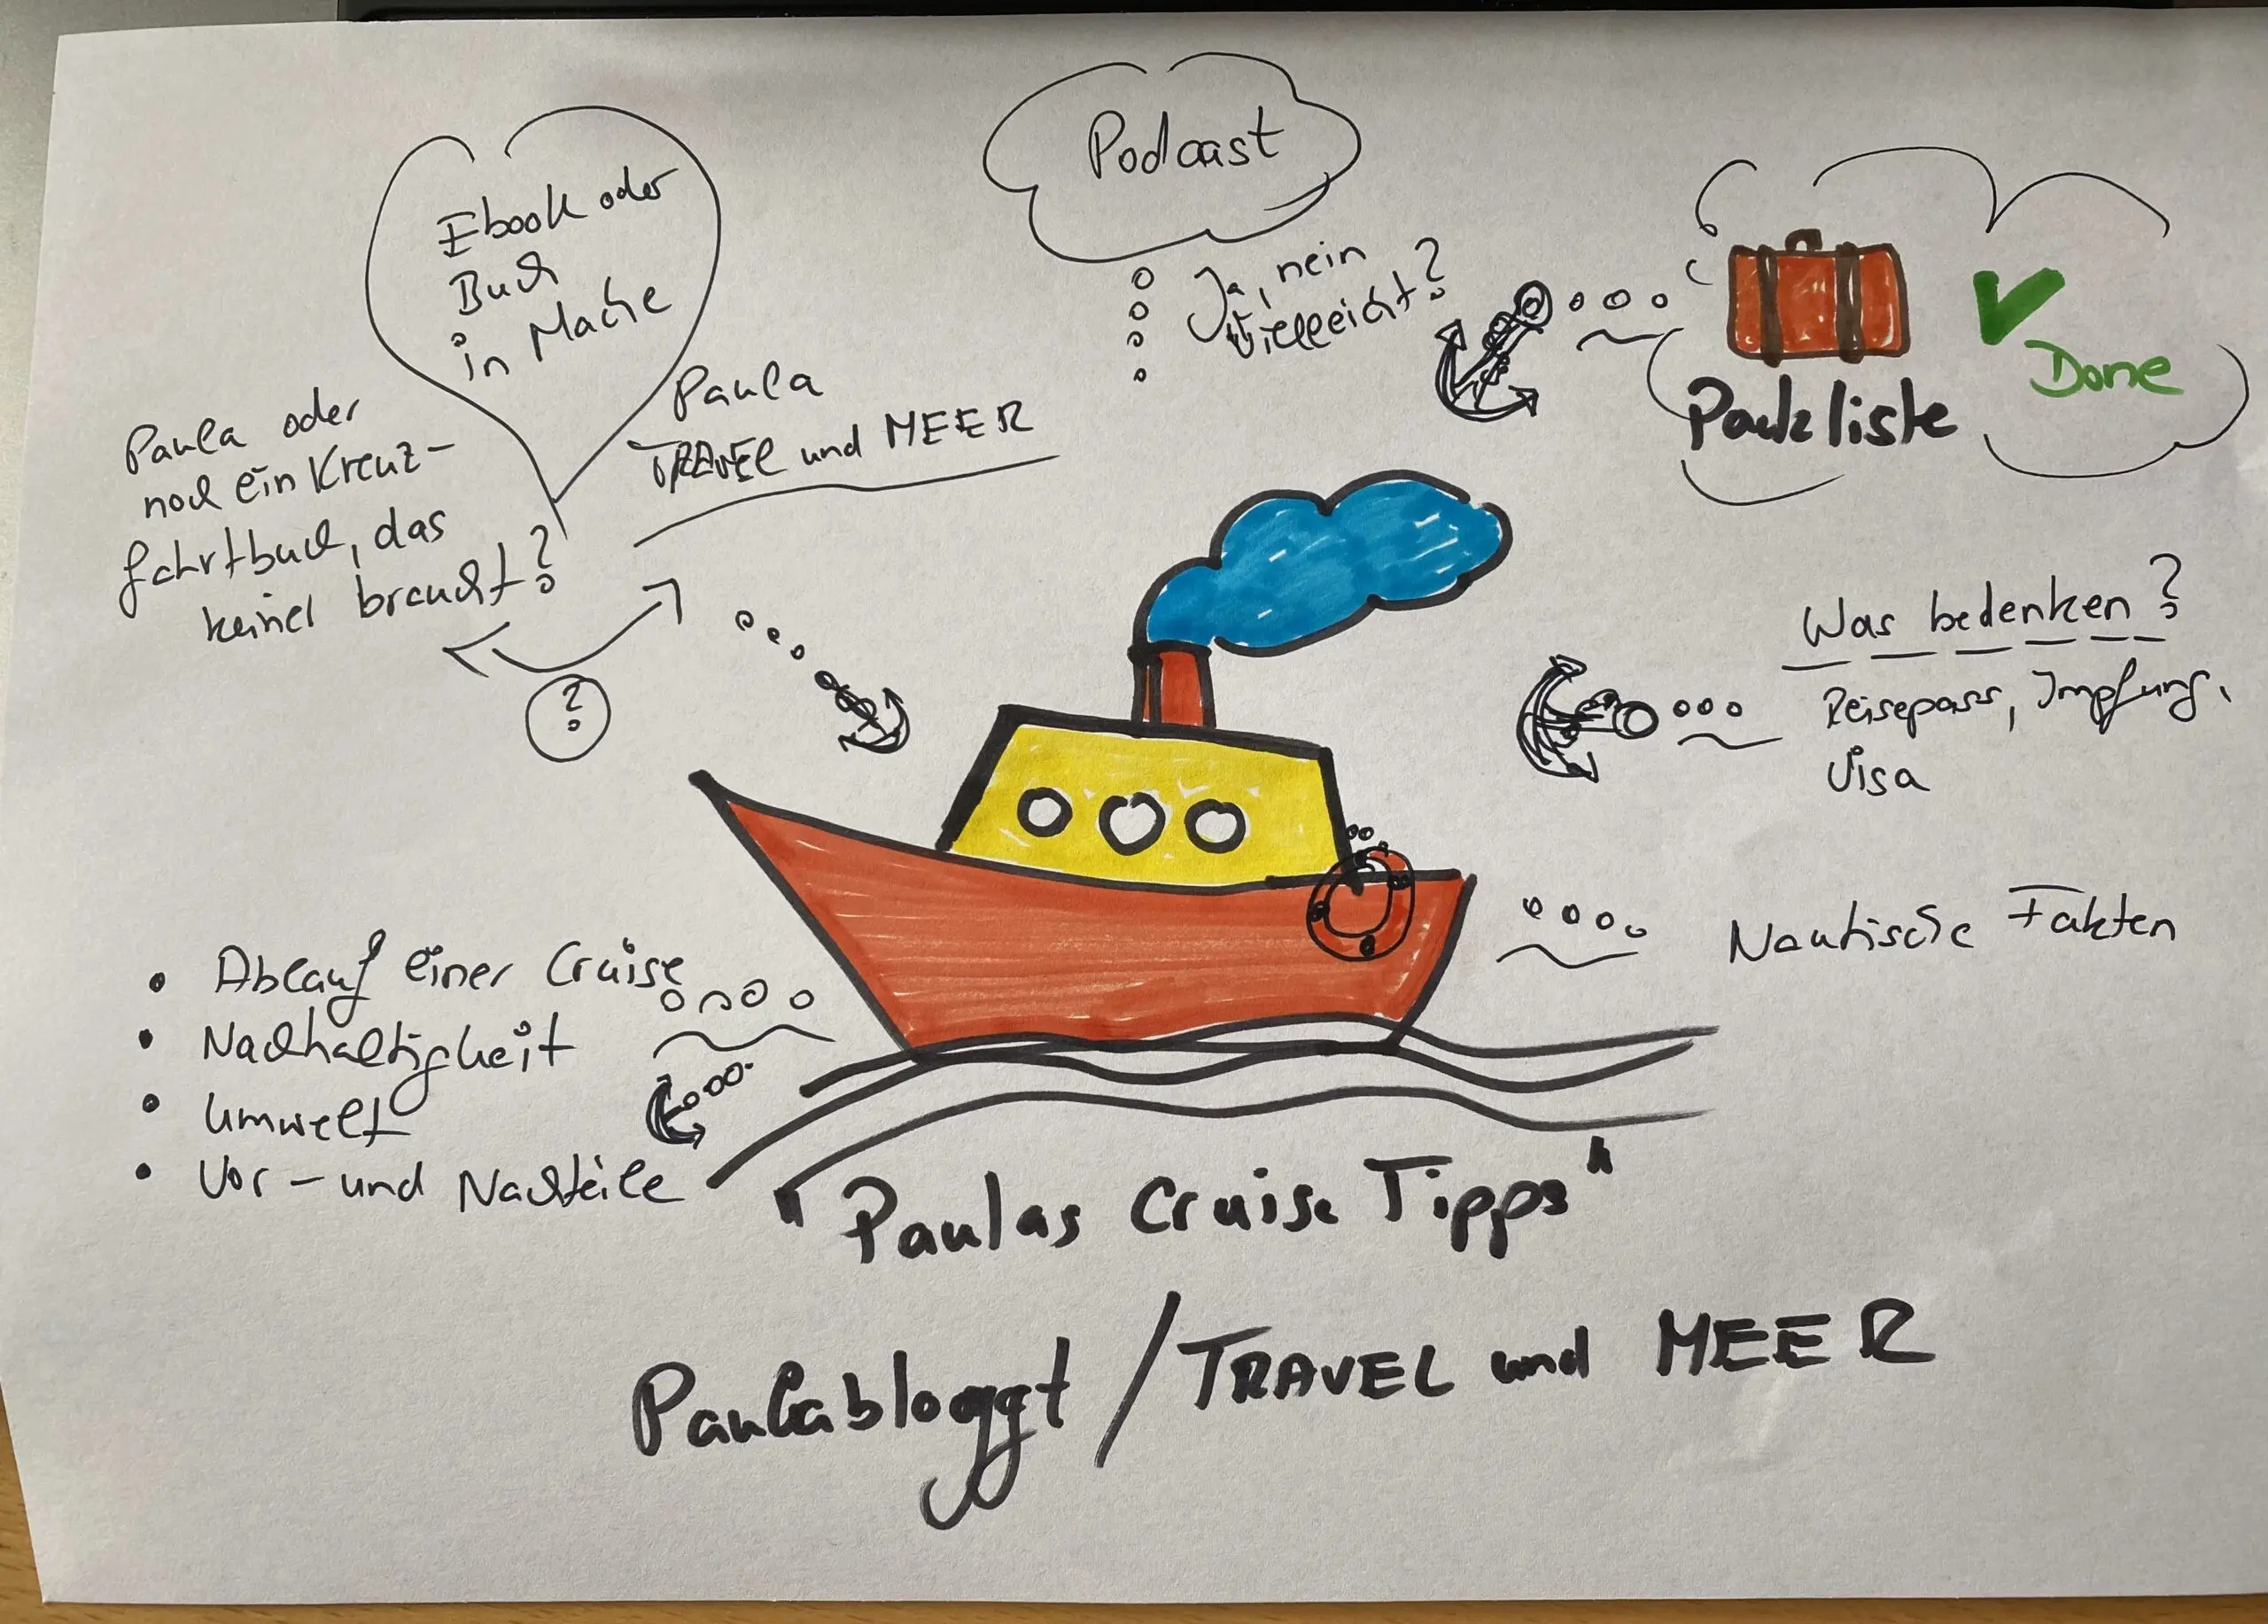 Ebook oder
Buch
in Mache
Paula oder
noch ein Kreuz-
fahrtbuch, das
keiner braucht?
Paula
TRAVEL und MEER
?
Podcast
Ja, nein
Vielleicht?
Packliste
Done
Was bedenken?
Reisepass, Impfung,
Visa
Nautische Fakten
• Ablauf einer Cruise
• Nachhaltigkeit
• Umwelt
• Vor- und Nachteile
"Paulas Cruise Tipps"
Paulabloggt / TRAVEL und MEER